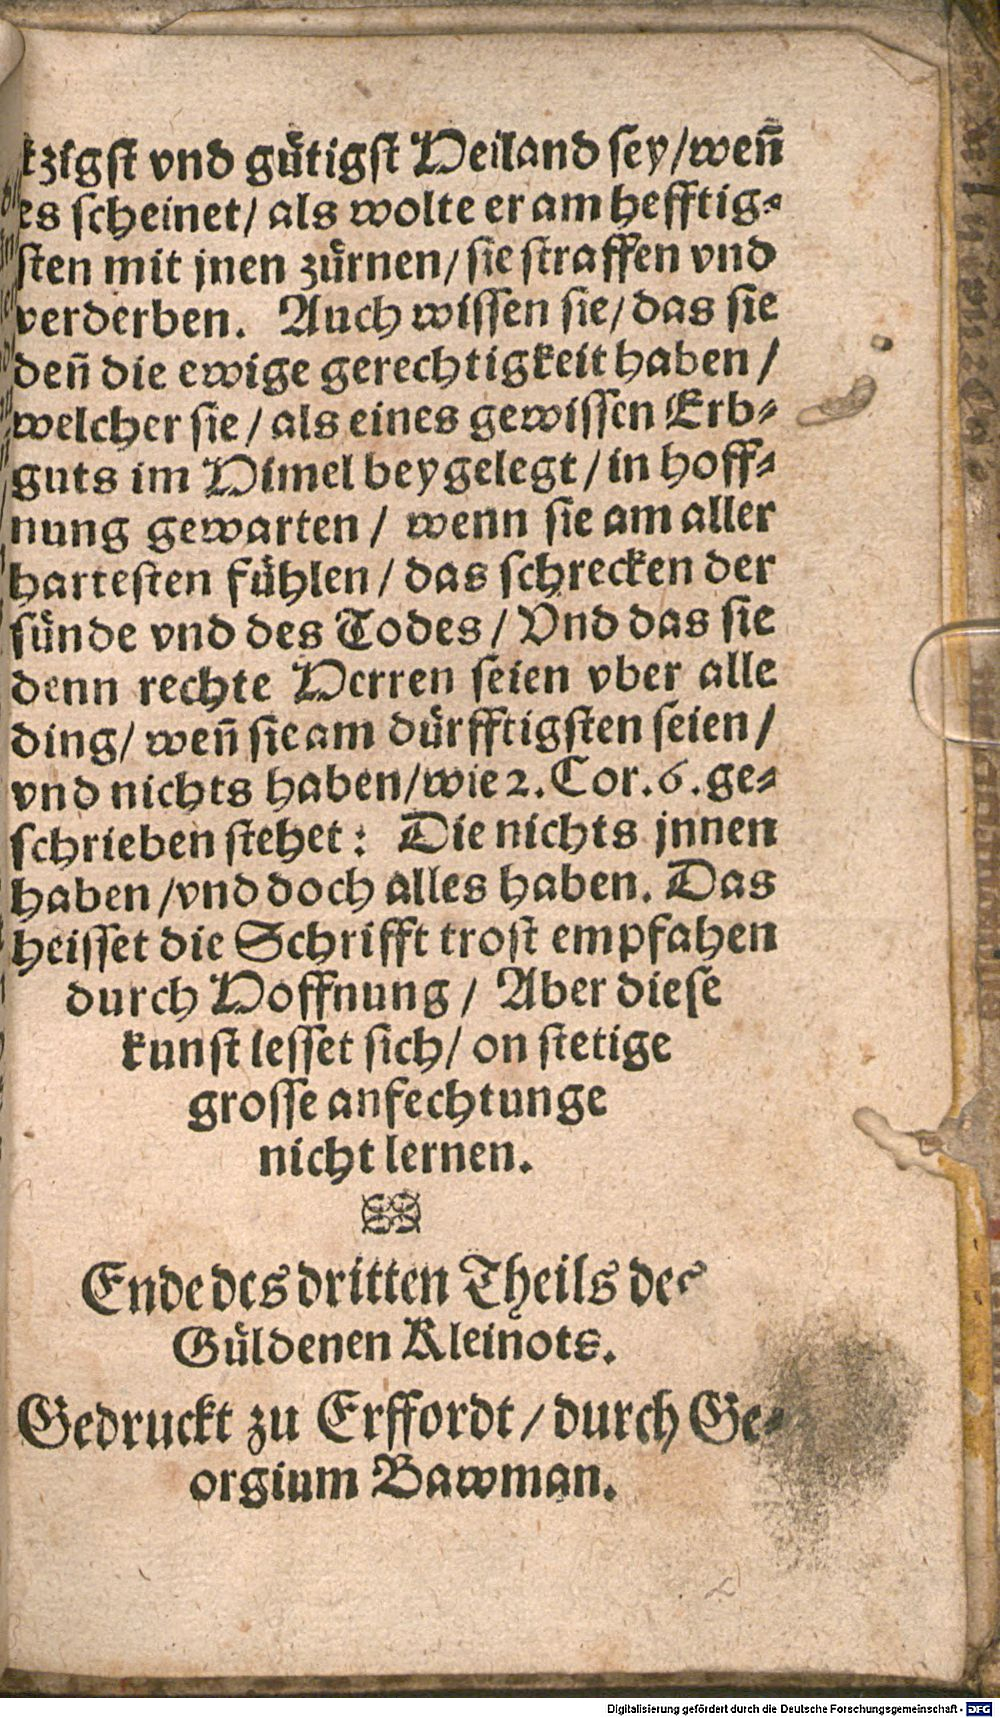 tzigst vnd gütigst Heiland sey/ wen̄
es scheinet/ als wolte er am hefftig-
sten mit jnen zürnen/ sie straffen vnd
verderben. Auch wissen sie/ das sie
den̄ die ewige gerechtigkeit haben/
welcher sie/ als eines gewissen Erb-
guts im Himel beygelegt/ in hoff-
nung gewarten/ wenn sie am aller
hartesten fühlen/ das schrecken der
sünde vnd des Todes/ Vnd das sie
denn rechte Herren seien vber alle
ding/ wen̄ sie am dürfftigsten seien/
vnd nichts haben/ wie 2. Cor. 6. ge-
schrieben stehet: Die nichts jnnen
haben/ vnd doch alles haben. Das
heisset die Schrifft trost empfahen
durch Hoffnung/ Aber diese
kunst lesset sich/ on stetige
grosse anfechtunge
nicht lernen.
Ende des dritten Theils des
Güldenen Kleinots.
Gedruckt zu Erffordt/ durch Ge-
orgium Bawman.
Digitalisierung gefördert durch die Deutsche Forschungsgemeinschaft - DFG